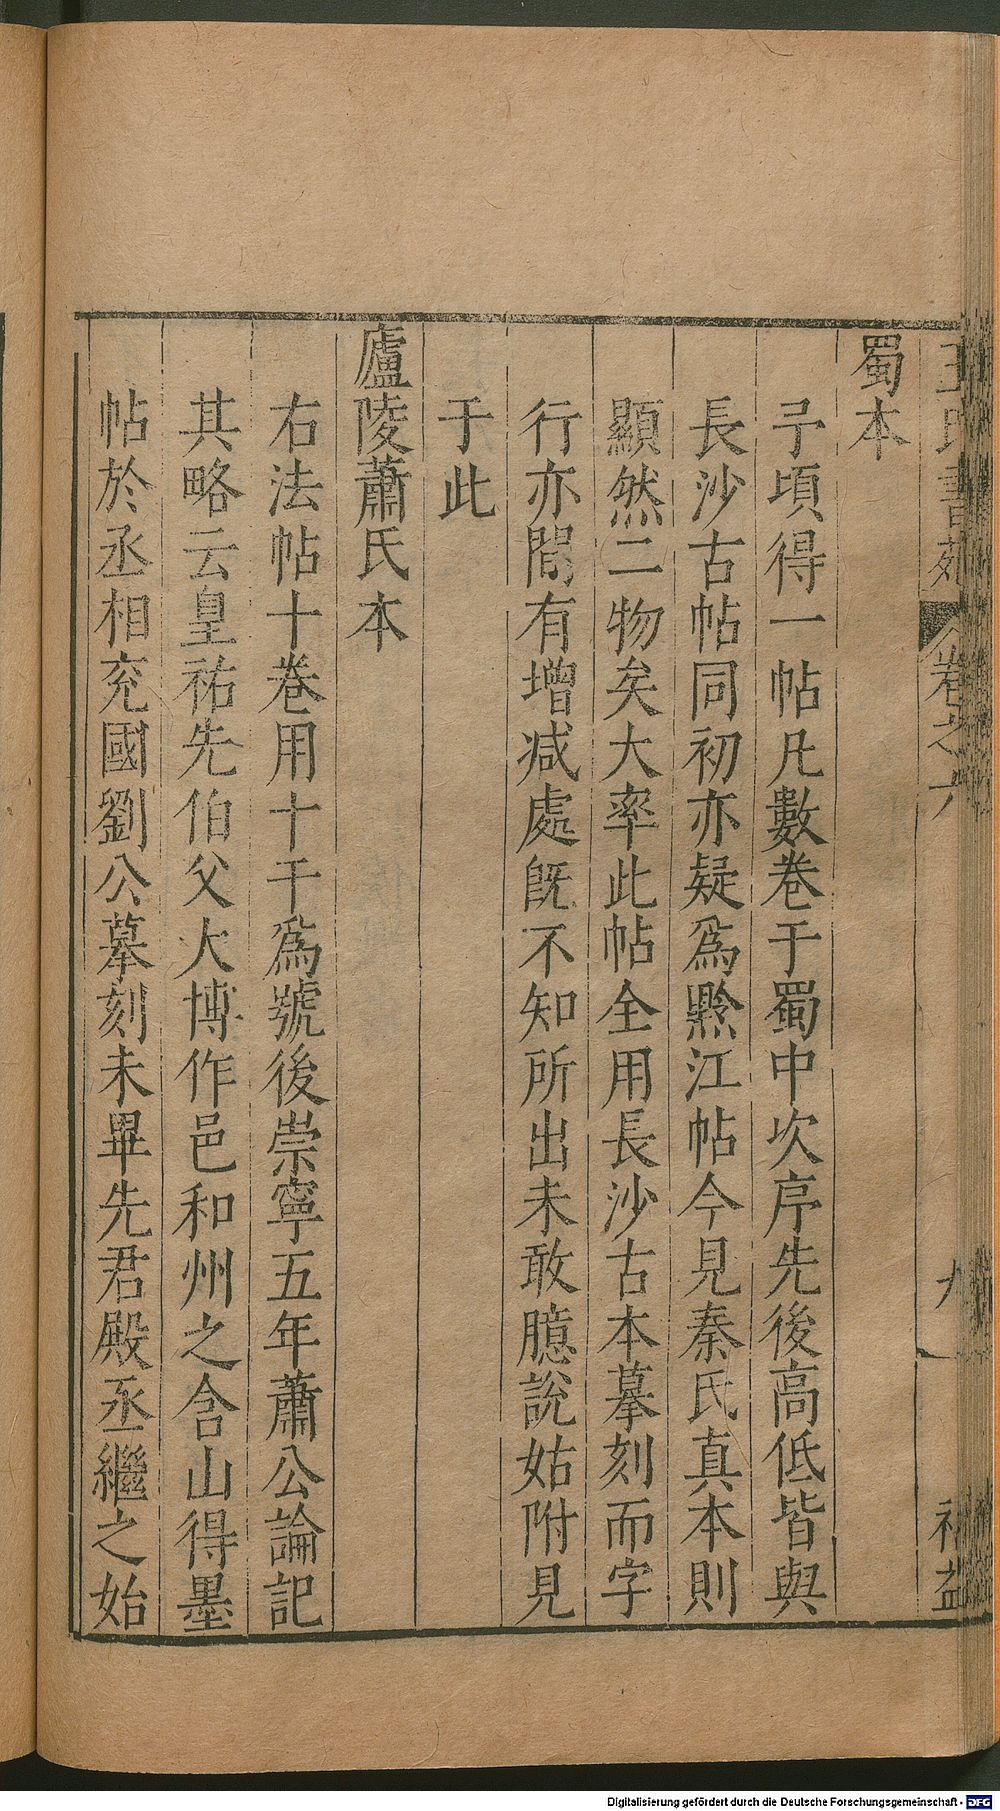 王氏書苑 卷之六 九
蜀本
予頃得一帖凡數卷于蜀中次序先後高低皆與
長沙古帖同初亦疑爲黔江帖今見秦氏真本則
顯然二物矣大率此帖全用長沙古本摹刻而字
行亦間有增减處旣不知所出未敢臆説姑附見
于此
廬陵蕭氏本
右法帖十卷用十干爲號後崇寧五年蕭公論記
其略云皇祐先伯父大博作邑和州之含山得墨
帖於丞相兖國劉公摹刻未畢先君殿丞繼之始
Digitalisierung gefördert durch die Deutsche Forschungsgemeinschaft - DFG